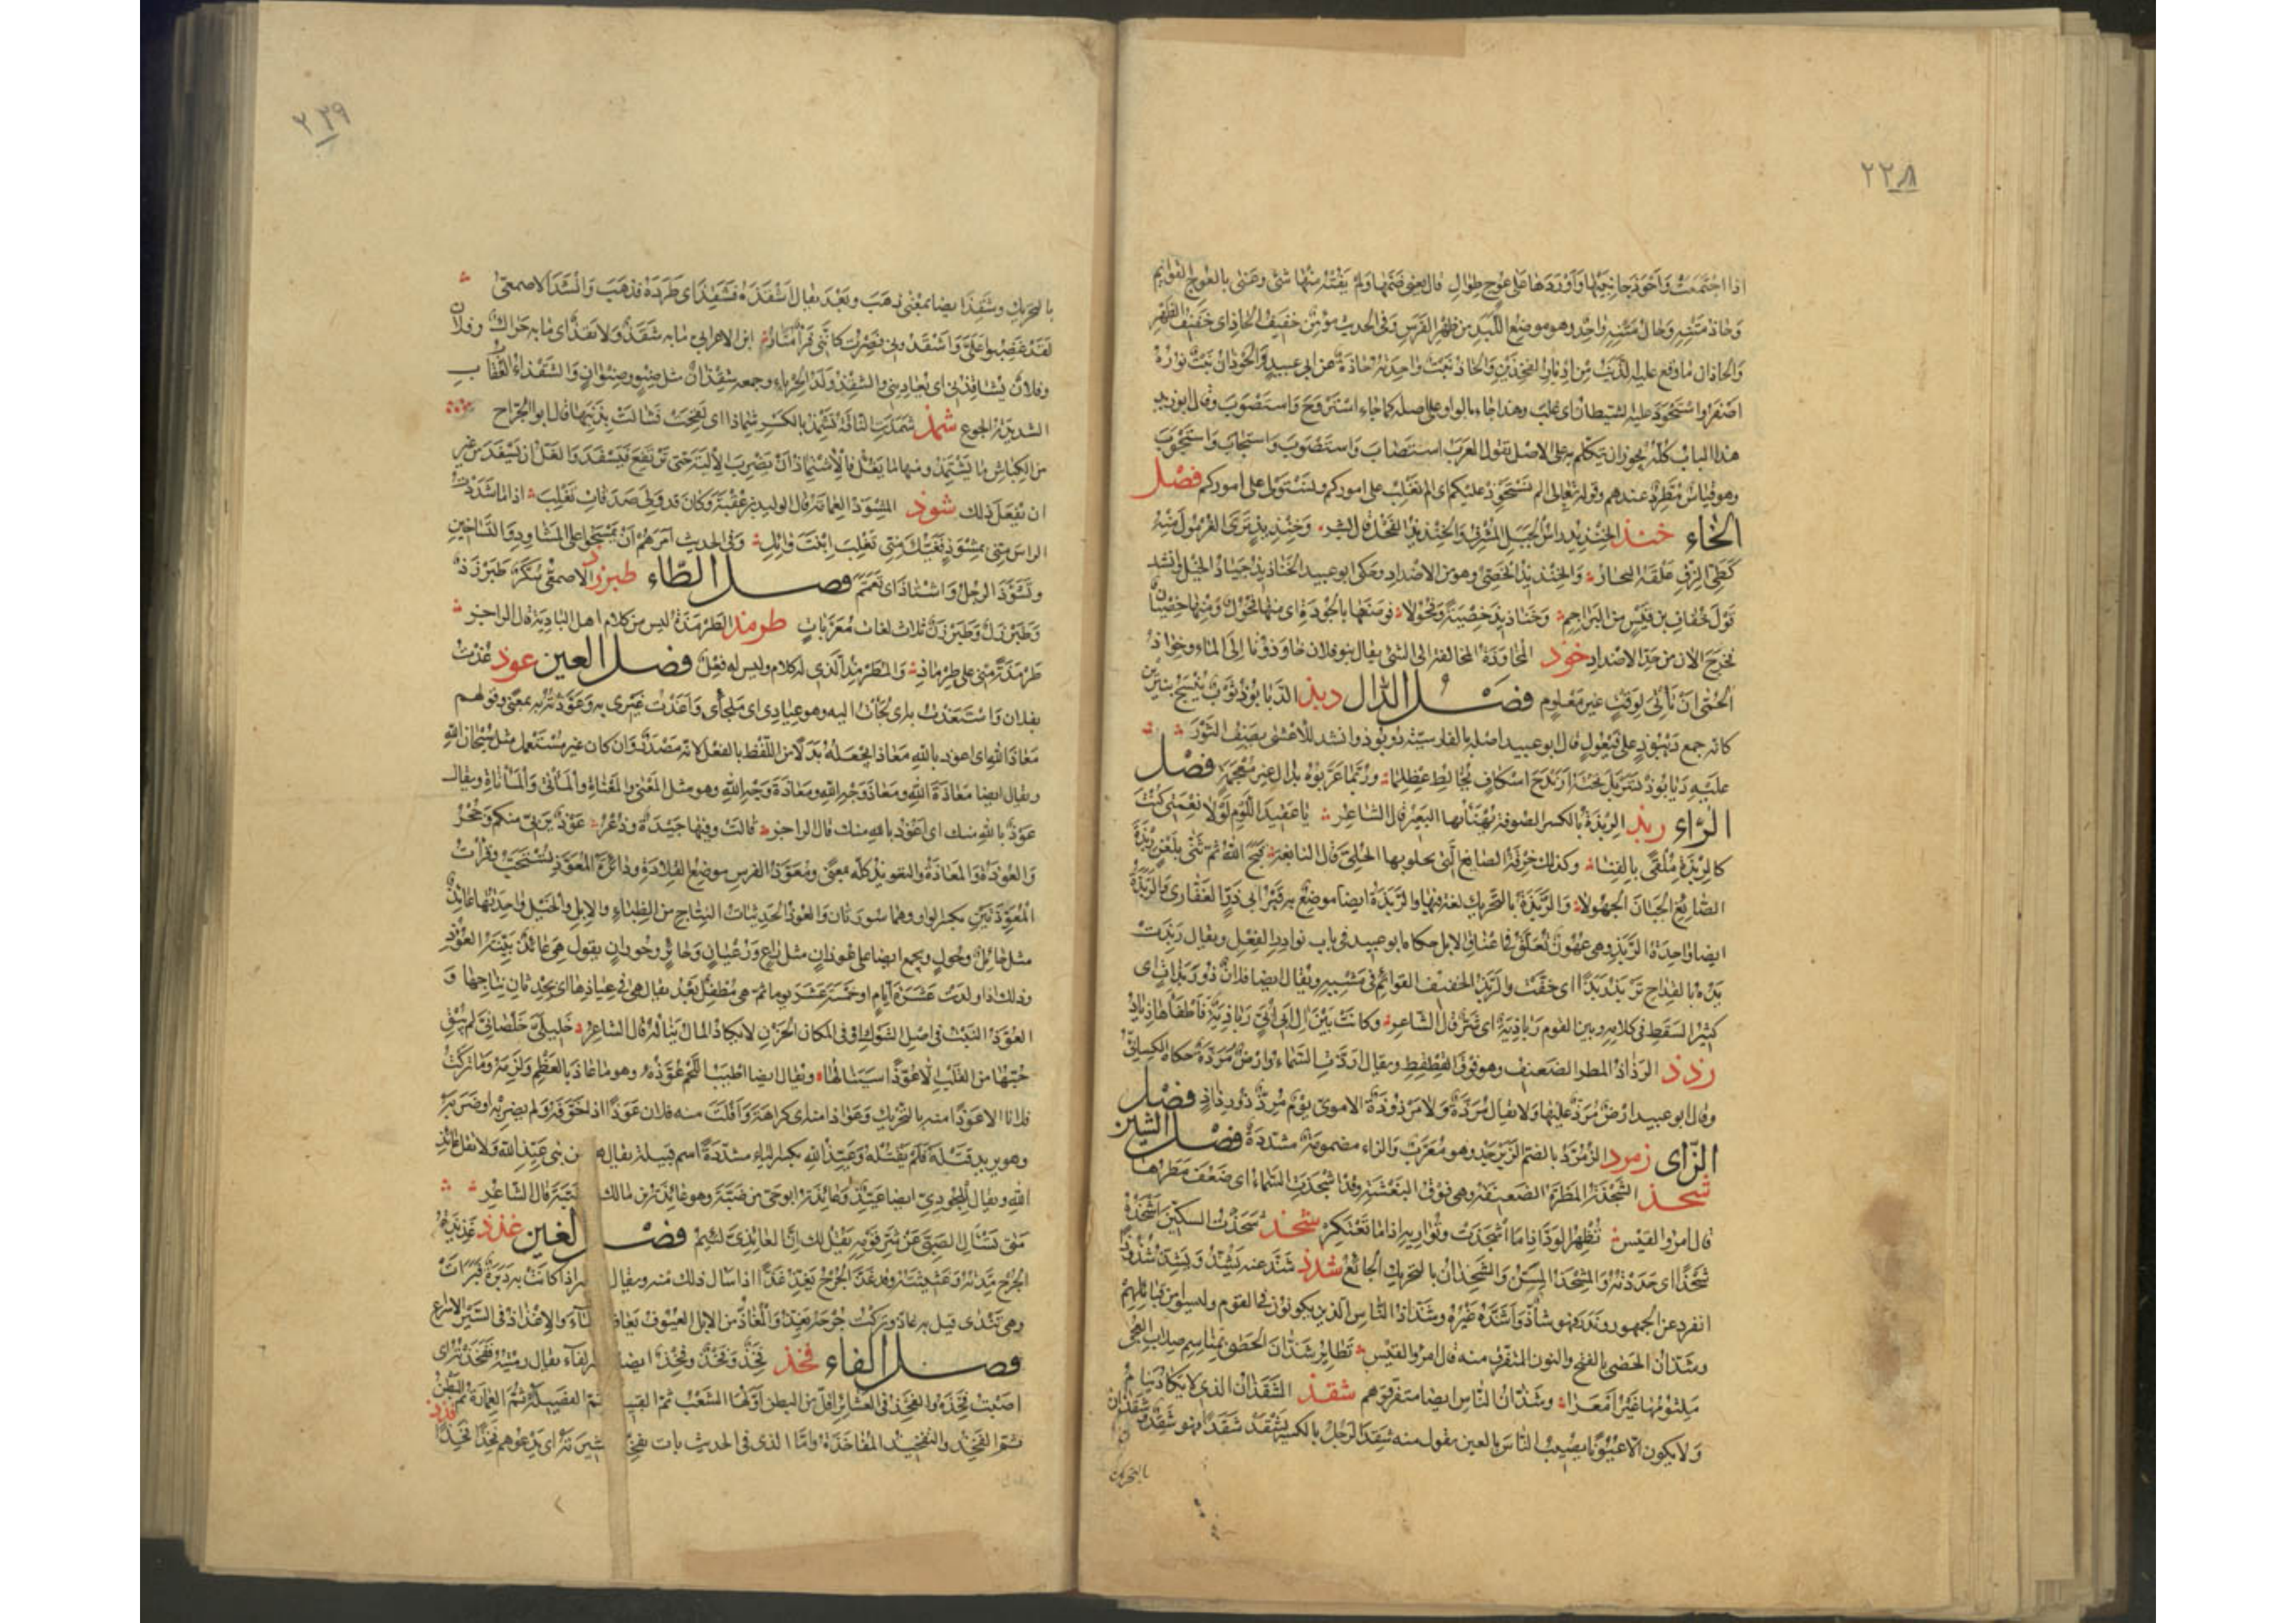 ٢٢٨
اذا اجْتَمَعَتْ وَاَحْوَذَ جانِبَيْها وَاَوْرَدَها عَلى عُوجٍ طِوالِ قال يعنى ضَمَّها ولم يَفُتْهُ منها شئ وعنى بالعوج القوايم
وحاذ مَتْنِهِ وحال متنه واحد وهو موضع اللبد من ظهر الفرس وفى الحديث مؤمن خفيف الحاذ اى خفيف الظهر
والحاذان ما وقع عليه الذنب من ادبار الفخذين والحاذ نبت واحدته حاذة عن ابى عبيد والحوذان نبت نوره
اصفر واستحوذ عليه الشيطان اى غلب وهذا جاء بالواو على اصله كما جاء استروح واستصوب وقال ابو زيد
هذا الباب كله يجوز ان يتكلم به على الاصل تقول العرب استصاب واستصوب واستجاب واستجوب
وهو قياس مطرد عندهم وقوله تعالى الم نستحوذ عليكم اى الم نغلب على اموركم ونستول على اموركم فصل
الخاء خنذ الخنذيذ راس الجبل المشرف والخنذيذ الفحل قال بشر وخنذيذ ترى الغرمول منه
كطى الزق علقه التجار والخنذيذ الخصى وهو من الاضداد وحكى ابو عبيد الخناذيذ جياد الخيل وانشد
قول خفاف بن قيس من البراجم وخناذيذ خصية وفحولا فوصفها بالجودة اى منها فحول ومنها خصيان
فخرج الان من حد الاضداد خوذ المخاوذة المخالفة الى الشئ يقال بنو فلان خاوذونا الى الماء وخواذ
الحمى ان تأتى لوقت غير معلوم فصل الدال ديذ الديابوذ ثوب ينسج بنيرين
كانه جمع ديبوذ على فيعول قال ابو عبيد اصله بالفارسية دوبوذ وانشد للاعشى يصف الثور
عليه ديابوذ تسربل تحته ارندج اسكاف يخالط عظلما وربما عربوه بدال غير معجمة فصل
الراء ربذ الربذة بالكسر الصوفة يهنأ بها البعير قال الشاعر يا عقيد اللؤم لولا نعمتى كنت
كالربذة ملقى بالفناء وكذلك خرقة الصايغ التى يجلو بها الحلى قال النابغة قبح الله ثم ثنى بلعن ربذة
الصايغ الجبان الجهولا والربذة بالتحريك لغة فيها والربذة ايضا موضع به قبر ابى ذر الغفارى والربذة
ايضا واحدة الربذ وهى عهون تعلق فى اعناق الابل حكاه ابو عبيد فى باب نوادر الفعل ويقال ربذت
يده بالقداح تربذ ربذا اى خفت والربذ الخفيف القوائم فى مشيه ويقال ايضا فلان ذو ربذات اى
كثير السقط فى كلامه وبين القوم رباذية اى شر قال الشاعر وكانت بين ال ابى ابى رباذية فاطفأها زياد
رذذ الرذاذ المطر الضعيف وهو فوق القطقط ويقال اردت السماء وارض مردة حكاه الكسائى
وقال ابو عبيد ارض مرذ عليها ولا يقال مرذة ولا مرذوذة الاموى يوم مرذ ذو رذاذ فصل
الزاى زمرد الزمرذ بالضم الزبرجد وهو معرب والراء مضمومة مشددة فصل الشين
شجذ الشجذة المطرة الضعيفة وهى فوق البغشة وقد اشجذت السماء اى ضعف مطرها
قال امرؤ القيس تظهر الود اذا ما اشجذت وتواريه اذا ما تعتكر شحذ شحذت السكين اشحذه
شحذا اى حددته والمشحذ المسن والشحذان بالتحريك الجائع شذذ شذ عنه يشذ ويشذ شذوذا
انفرد عن الجمهور وندر فهو شاذ واشذه غيره وشذاذ الناس الذين يكونون فى القوم وليسوا من قبائلهم
وشذان الحصى بالفتح والنون المتفرق منه قال امرؤ القيس تطاير شذان الحصى بمناسم صلاب العجى
ملثومها غير امعرا وشذان الناس ايضا متفرقوهم شقذ الشقذان الذى لا يكاد ينام
ولا يكون الا عيونا يصيب الناس بالعين يقول منه شقذ الرجل بالكسر يشقذ شقذا فهو شقذ وشقذان
بالتحريك
٢٣٩
بالتحريك وشقذ ايضا بمعنى ذهب وبعد يقال اشقذه فشقذ اى طرده فذهب وانشد الاصمعى
لقد غضبوا على واشقذونى فصرت كاننى فرا متار ابن الاعرابى ما به شقذ ولا نقذ اى ما به حراك وفلان
وفلان يشاقذنى اى يعادينى والشقذ ولد الحرباء وجمعه شقذان مثل صنو وصنوان والشقذاء العقاب
الشديدة الجوع شمذ شمذت الناقة تشمذ بالكسر شماذا اى لقحت فشالت بذنبها قال ابو الجراح
من الكباش ما يشتمذ ومنها ما يغل فالاشتماذ ان يضرب الالية حتى ترتفع فيسفد والغل ان يسفد من غير
ان يفعل ذلك شوذ المشوذ العمامة قال الوليد بن عقبة وكان قد ولى صدقات تغلب اذا ما شددت
الراس منى بمشوذ فغيك منى تغلب ابنة وائل وفى الحديث امرهم ان يمسحوا على المشاوذ والتساخين
وتشوذ الرجل واشتاذ اى تعمم فصل الطاء طبرزذ الاصمعى سكر طبرزذ
وطبرزل وطبرزن ثلاث لغات معربات طرمذ الطرمذة ليس من كلام اهل البادية قال الراجز
طرمذة منى على طرماذ والمطرمذ الذى له كلام وليس له فعل فصل العين عوذ عذت
بفلان واستعذت به اى لجأت اليه وهو عياذى اى ملجأى واعذت غيرى به وعوذته به بمعنى وقولهم
معاذ الله اى اعوذ بالله معاذا بجعله بدلا من اللفظ بالفعل لانه مصدر وان كان غير مستعمل مثل سبحان الله
ويقال ايضا معاذة الله ومعاذ وجه الله ومعاذة وجه الله وهو مثل المعنى والمعناة والمأتى والمأتاة ويقال
عوذ بالله منك اى اعوذ بالله منك قال الراجز قالت وفيها حيدة وذعر عوذ بربى منكم وحجر
والعوذة والمعاذة والتعويذ كله بمعنى ومعوذ الفرس موضع القلادة ودائرة المعوذ تستحب وقرأت
المعوذتين بكسر الواو وهما سورتان والعوذ الحديثات النتاج من الظباء والابل والخيل واحدتها عائذ
مثل حائل وحول ويجمع ايضا على عوذان مثل راع ورعيان وحائر وحوران يقول هى عائذ بينة العوذ
وذلك اذا ولدت عشرة ايام او خمسة عشر يوما ثم هى مطفل بعد يقال هى فى عياذها اى بحدثان نتاجها و
العوذ النبت فى اصل الشوك او فى المكان الحزن لا يكاد المال يناله قال الشاعر خليلى خلصانى لم يبق
حبها من القلب الا عوذا سينالها ويقال ايضا اطيب اللحم عوذه وهو ما عاذ بالعظم ولزمه وما تركت
فلانا الا عوذا منه بالتحريك وعواذا منه اى كراهة وافلت منه فلان عوذا اذا خوفه ولم يضربه او ضربه
وهو يريد قتله فلم يقتله وعيذ الله بكسر الياء مشددة اسم قبيلة يقال هو من بنى عيذ الله ولا تقل عائذ
الله ويقال للجودى ايضا عيذ وعائذة ابو حى من ضبة وهو عائذة بن مالك ضبة قال الشاعر
متى تسأل الضبى عن شر قومه يقل لك ان العائذى لئيم فصل الغين غذذ غذيذة
الجرح مدته وغثيثته وقد غذ الجرح يغذ غذا اذا سال ذلك منه ويقال اذا كانت به دبرة فبرأت
وهى تندى قيل به غاذ وتركت جرحه يغذ والمغاذ من الابل العيوف يعاف الماء والاغذاذ فى السير الاسراع
فصل الفاء فخذ فخذ وفخذ وفخذ ايضا بكسر الفاء يقال رميته ففخذته اى
اصبت فخذه والفخذ فى العشائر اقل من البطن اولها الشعب ثم القبيلة ثم الفصيلة ثم العمارة ثم البطن
ثم الفخذ والتفخيذ المفاخذة واما الذى فى الحديث بات يفخذ عشيرته اى يدعوهم فخذا فخذا
فذذ